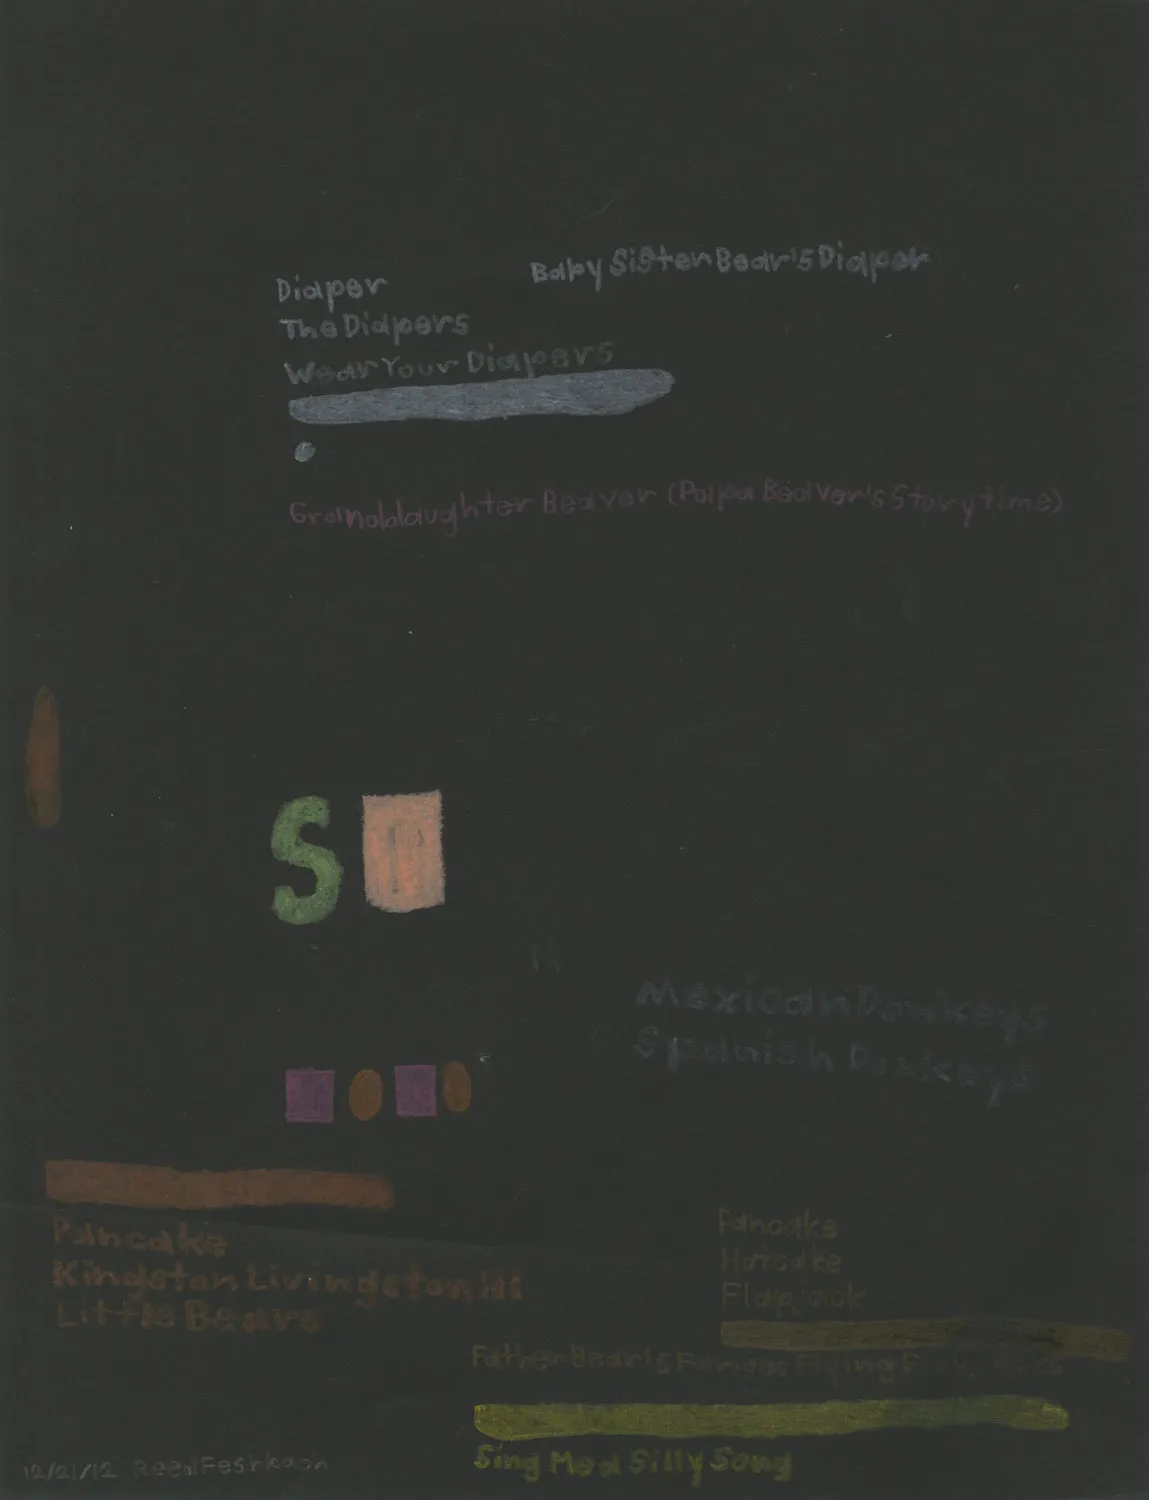 Baby Sister Bear's Diaper
Diaper
The Diapers
Wear Your Diapers
Granddaughter Beaver (Papa Beaver's Storytime)
S U
Mexican Donkeys
Spanish Donkeys
Pancake
Kingston Livingston III
Little Bears
Pancake
Hotcake
Flapjack
Father Bear's Famous Flying
Sing Me a Silly Song
12/21/12 Reed